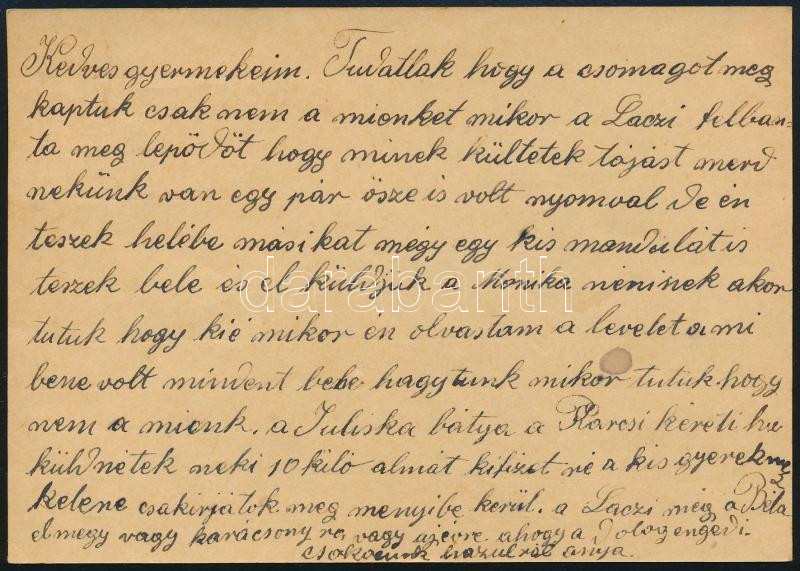 Kedves gyermekeim. Tudatlak hogy a csomagot meg
kaptuk csak nem a mienket mikor a Laczi felban-
ta meg lepődöt hogy minek kültetek tojást merd
nekünk van egy pár ösze is volt nyomval de én
teszek helébe másikat mégy egy kis mandulát is
teszek bele és el küldjük a Monika néninek akor
tutuk hogy kié mikor en olvastam a levelet a mi
bene volt mindent bele hagytunk mikor tutuk hogy
nem a mienk. a Juliska bátyja a Karcsi kéreti ha
küldnétek neki 10 kiló almát kifizet né a kis gyereknek
kelene csak irjátok meg menyibe kerül. a Laczi még a Béla
elmegy vagy karácsony ra vagy ujévre ahogy a dolog engedi.
csokolunk hazulról anya.
darabanth